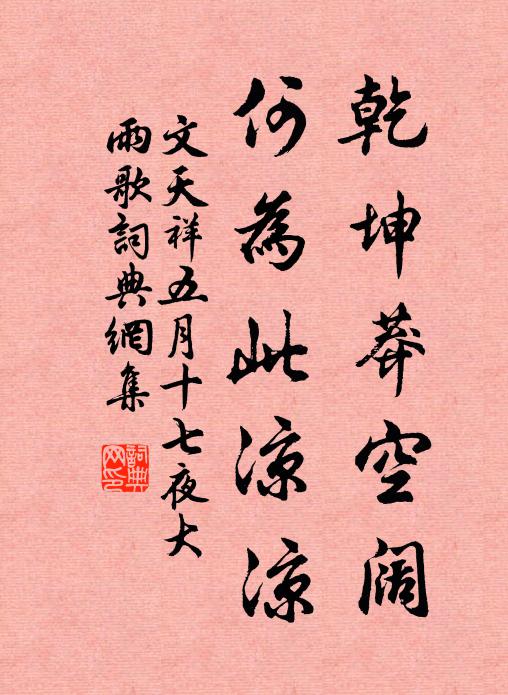 乾坤莽空阔
何為此凉凉
文天祥五月十七夜大
雨歌詞典網集
詞典网印